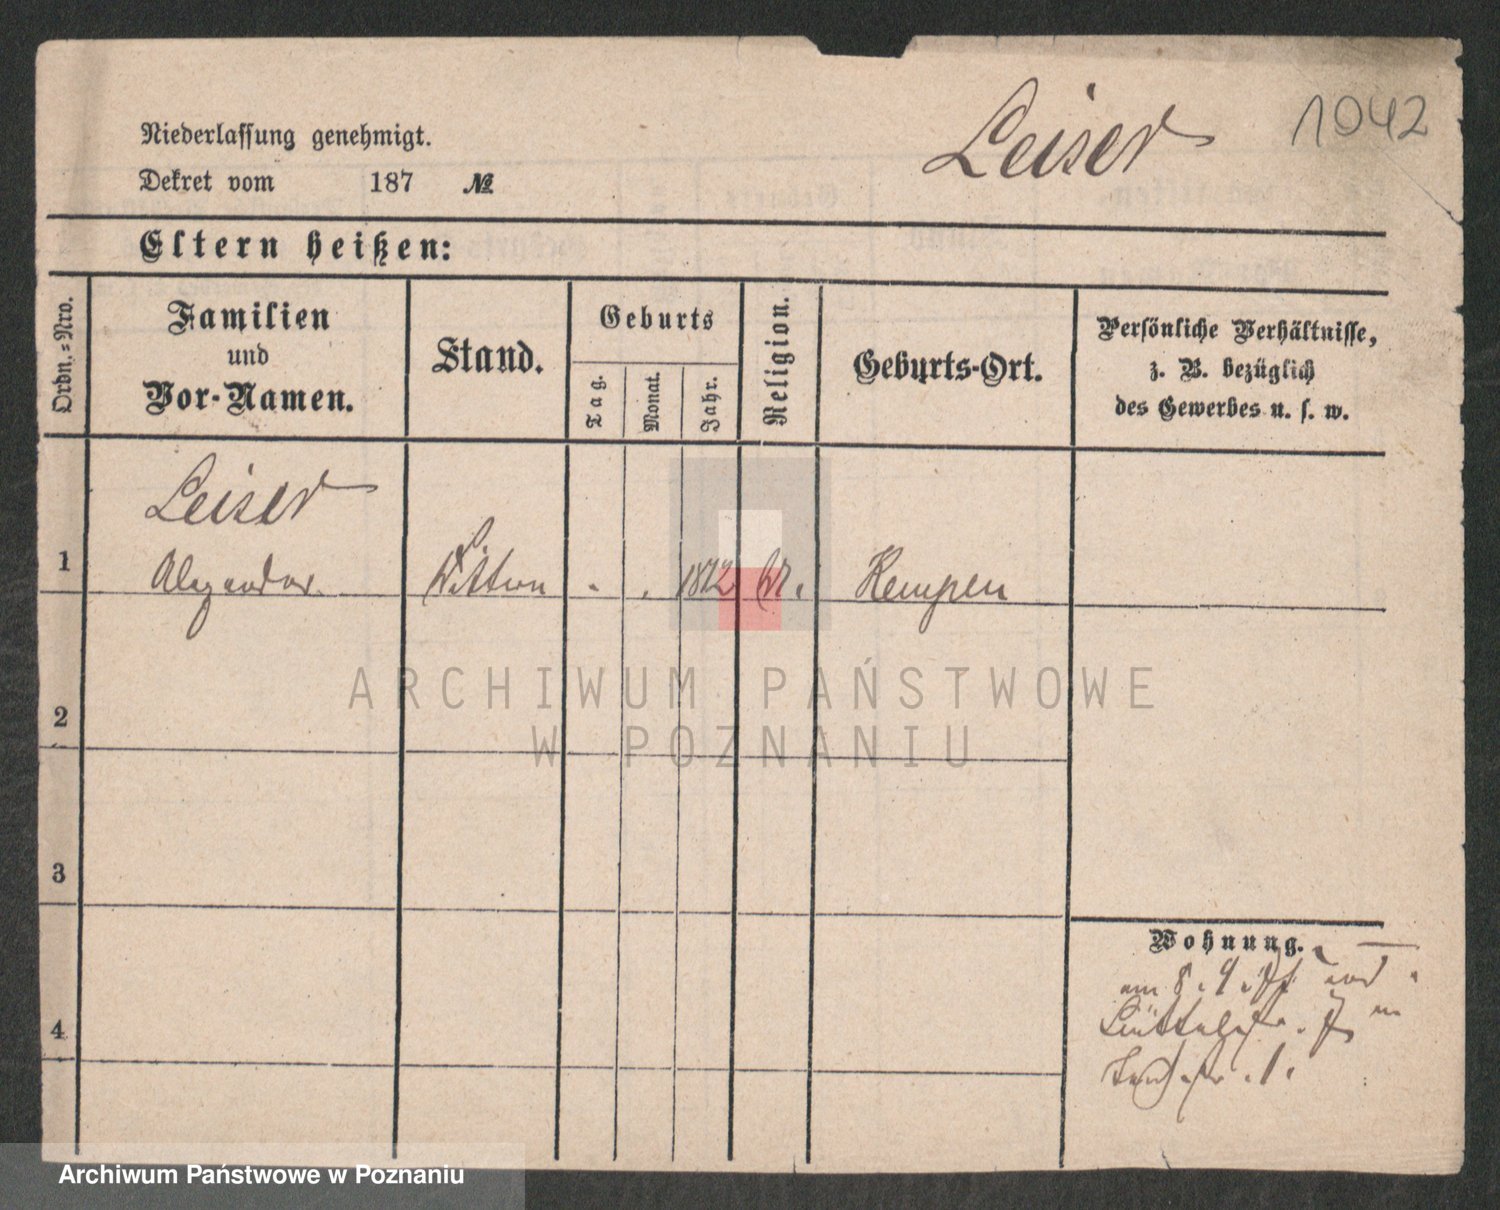 Niederlassung genehmigt.
Dekret vom 187 №
Leiser
1042
Eltern heißen:
Ordn.-Nro.
Familien
und
Vor-Namen.
Stand.
Geburts
Tag.
Monat.
Jahr.
Religion.
Geburts-Ort.
Persönliche Verhältnisse,
z. B. bezüglich
des Gewerbes u. s. w.
Leiser
1 Alexander 1872 Kempen
ARCHIWUM PAŃSTWOWE
W POZNANIU
2
3
4
Wohnung.
Archiwum Państwowe w Poznaniu